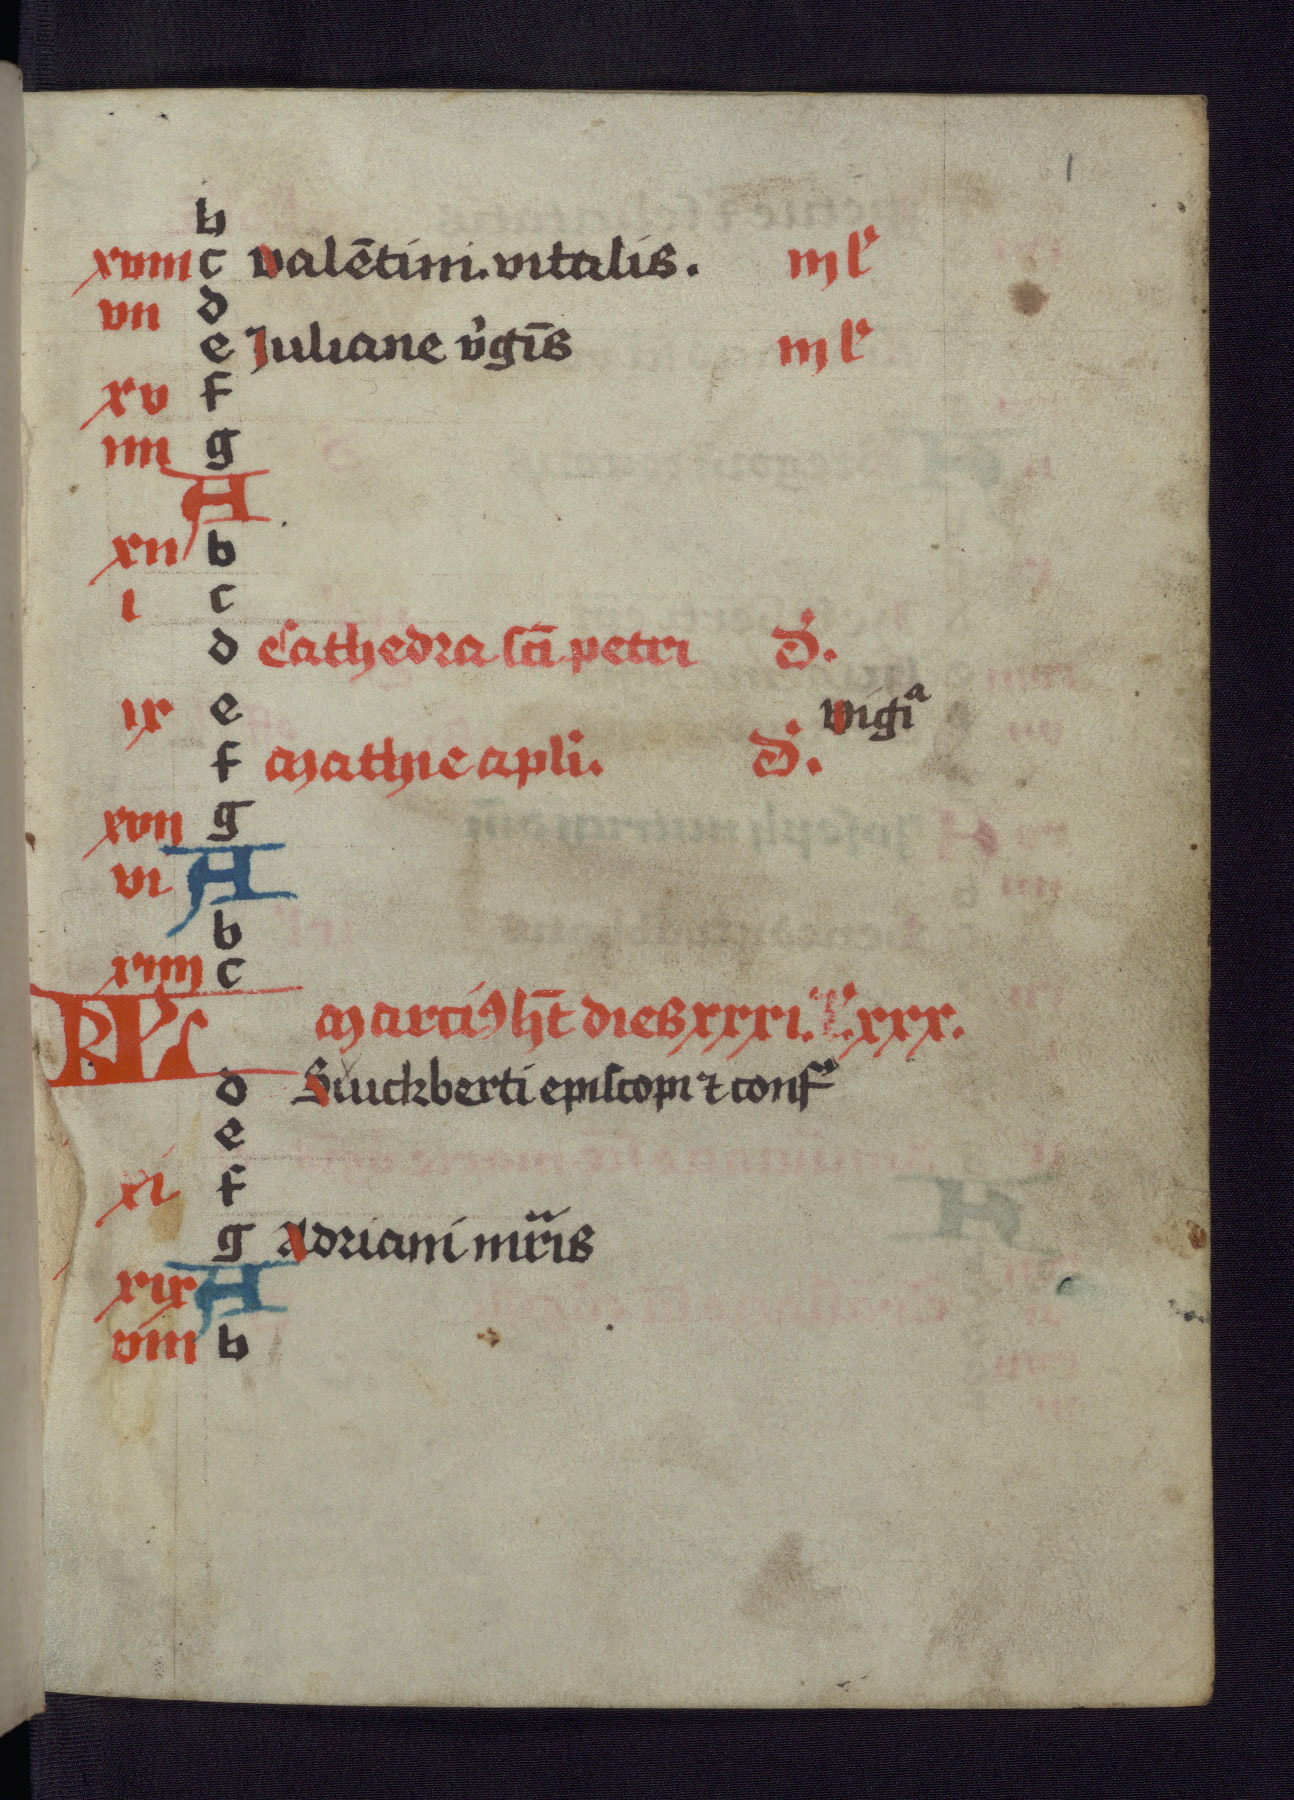 1
b
xviii c valētíni. vitalis. iij lc̄
vii d
e Juliane v̓gīs iij lc̄
xv f
iiii g
A
xii b
i c
d Cathedra sc̄i petri d̓.
ix e vigiᵃ
f mathie apli̓. d̓.
xvii g
vi A
b
xiiii c
KL marciꝰ hꝫt dies xxxi. l̓ xxx.
d Swickberti episcopi ⁊ conf̓
e
xi f
g Adriani mr̄is
xix A
viii b